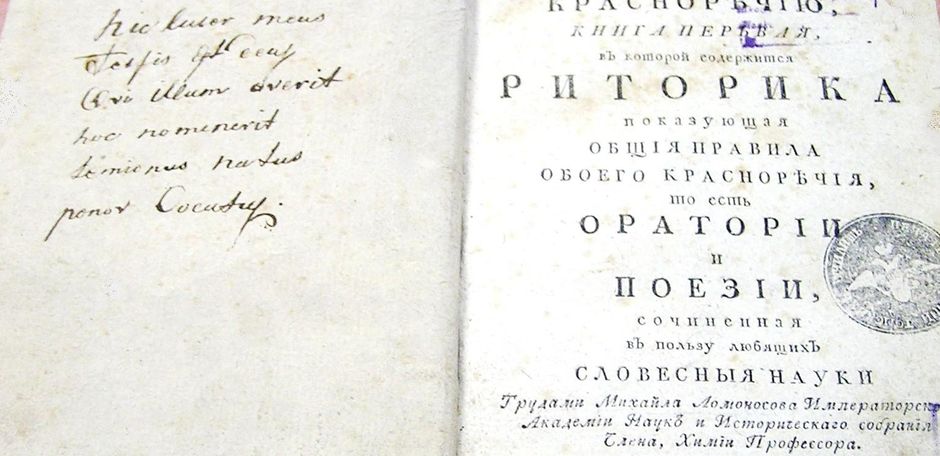 hic liber meus
Testis est deus
illum
hoc nomenerit
natus
КРАСНОРѢЧІЮ,
КНИГА ПЕРЬВАЯ,
въ которой содержится
РИТОРИКА
показующая
ОБЩІЯ ПРАВИЛА
ОБОЕГО КРАСНОРѢЧІЯ,
то есть
ОРАТОРІИ
И
ПОЕЗІИ,
сочиненная
въ пользу любящихъ
СЛОВЕСНЫЯ НАУКИ
Трудами Михайла Ломоносова Императорск
Академіи Наукъ и Историческаго собранія
Члена, Химіи Профессора.